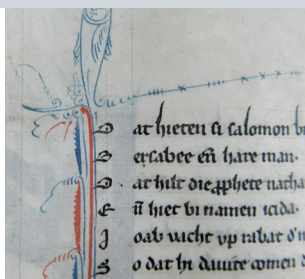 D at hieten si salomon
B ersabee eñ hare man
D at hilt die ꝓphete natha
E ñ hiet bi namen
J oab vacht vp rabat
S o dat hi dauite comen